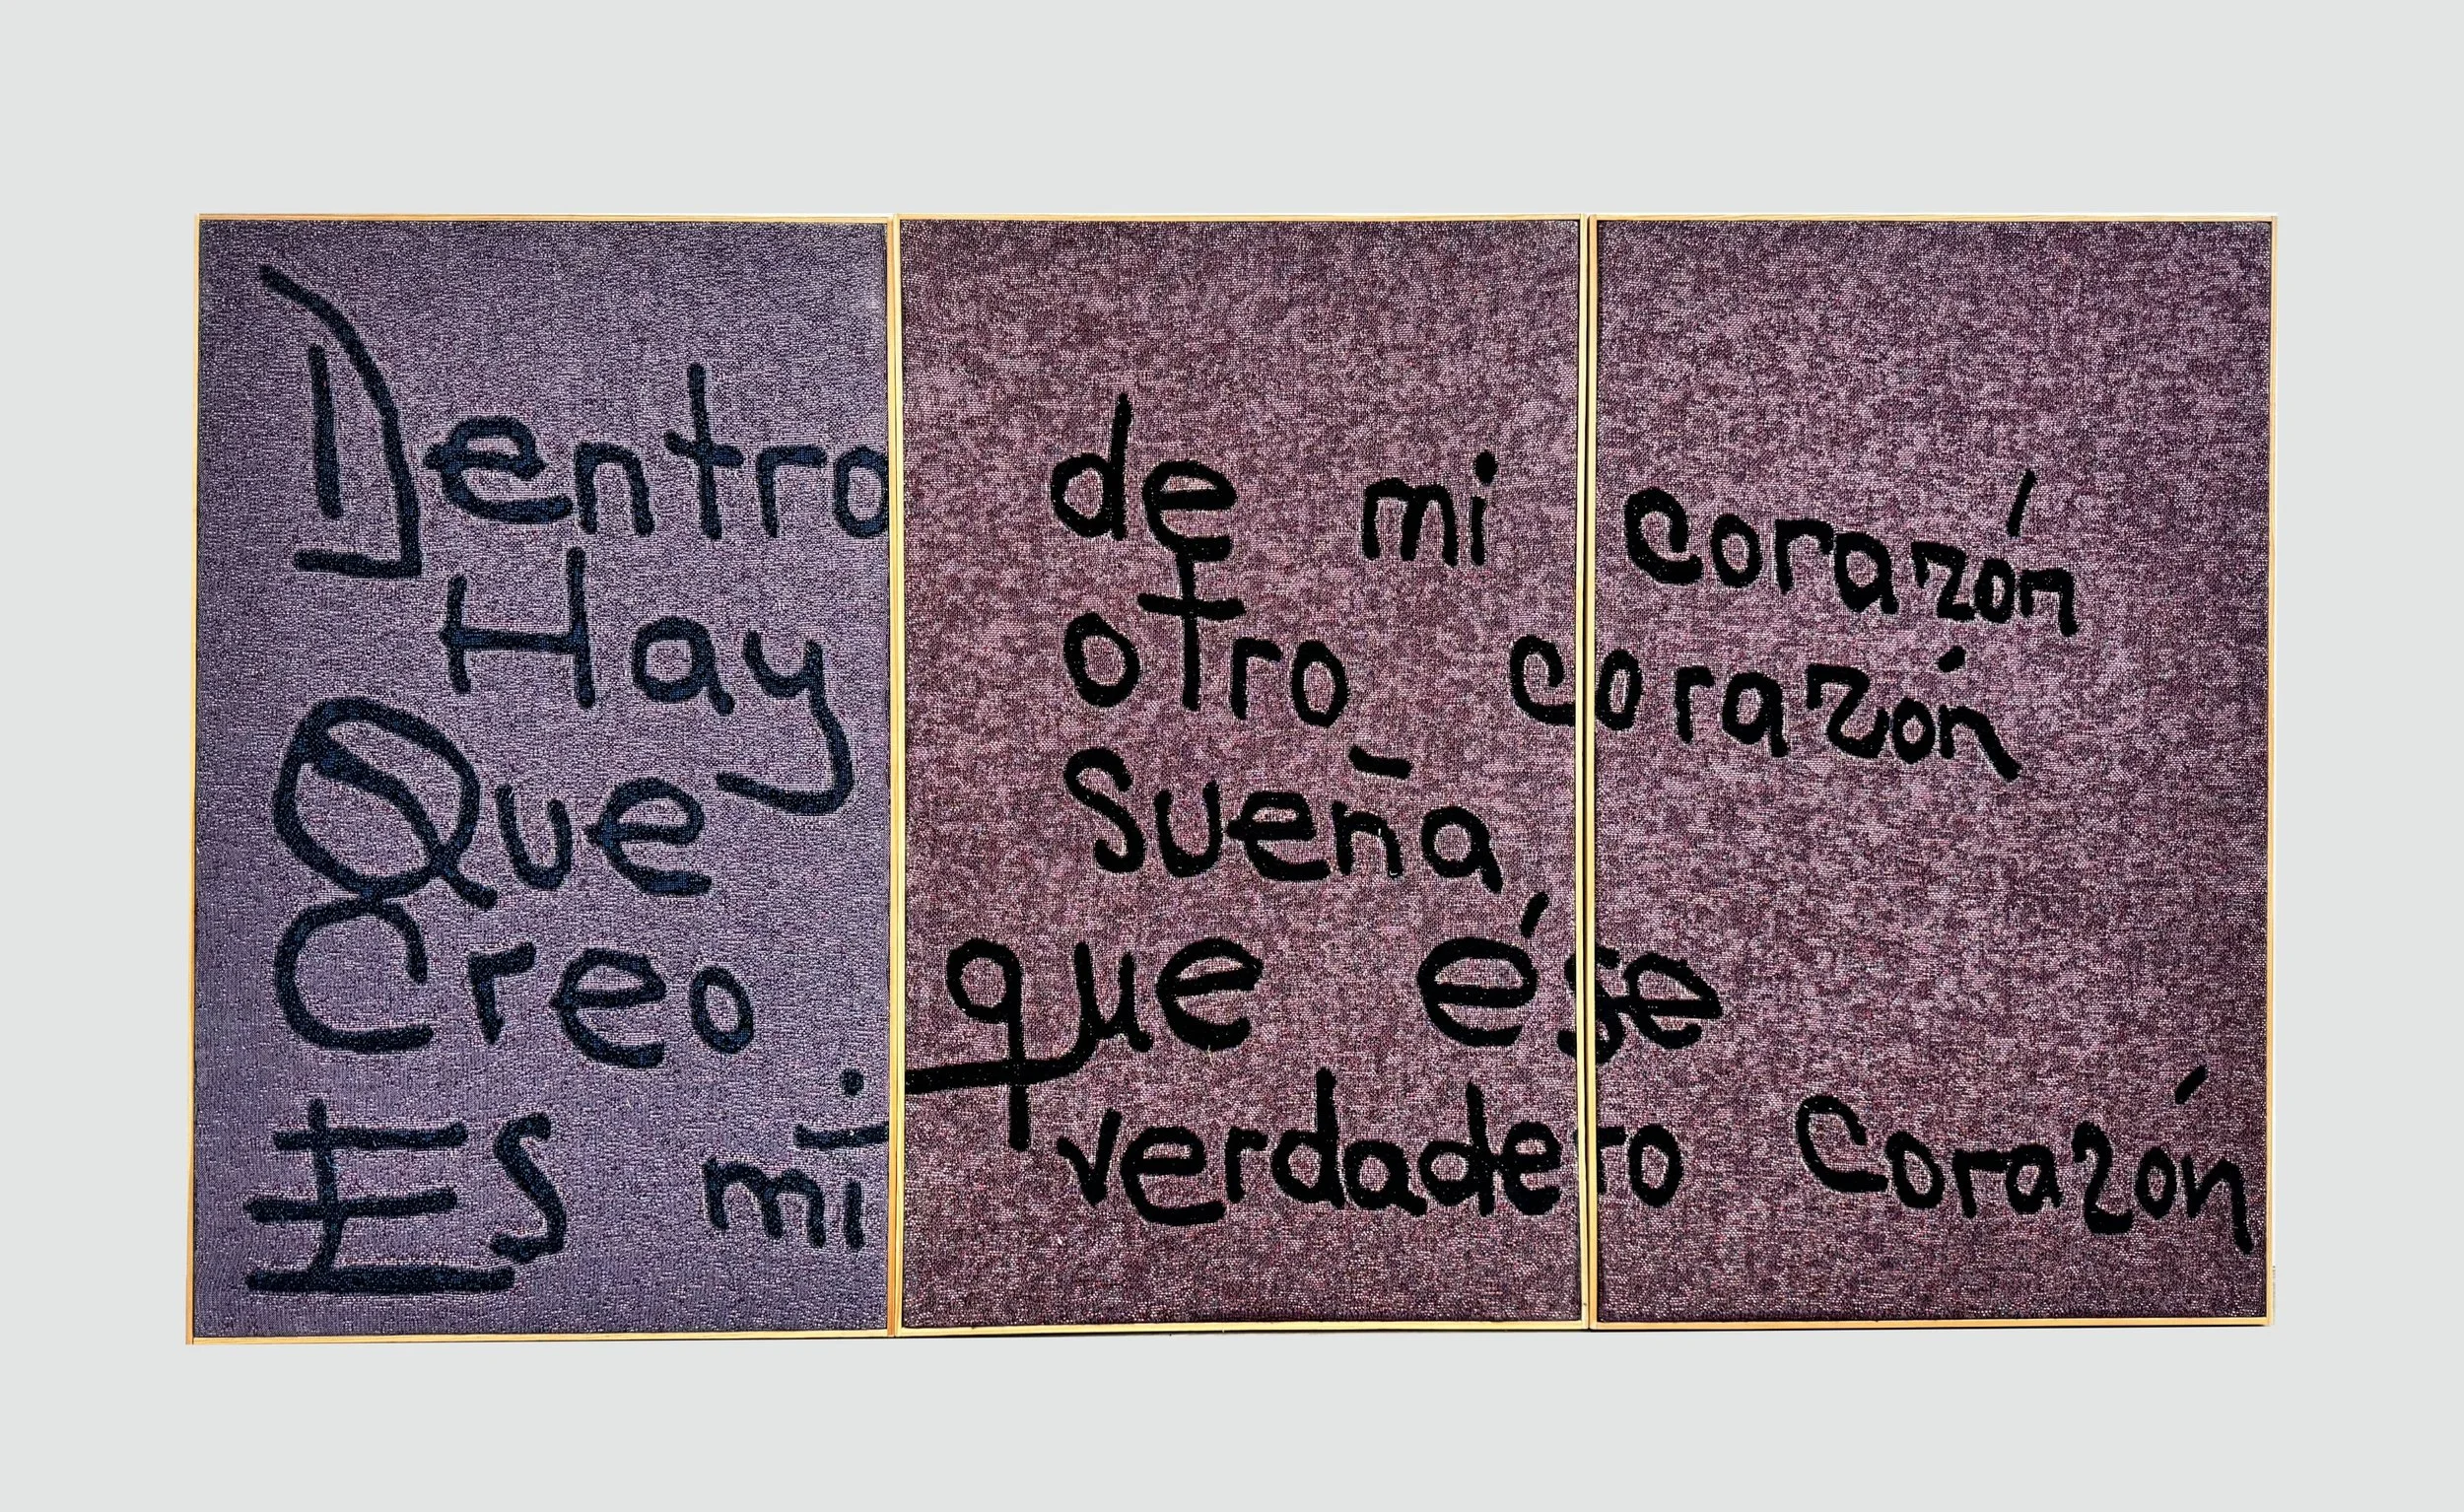 Dentro de mi corazón
Hay otro corazón
Que sueña
Creo que ése
Es mi verdadero corazón